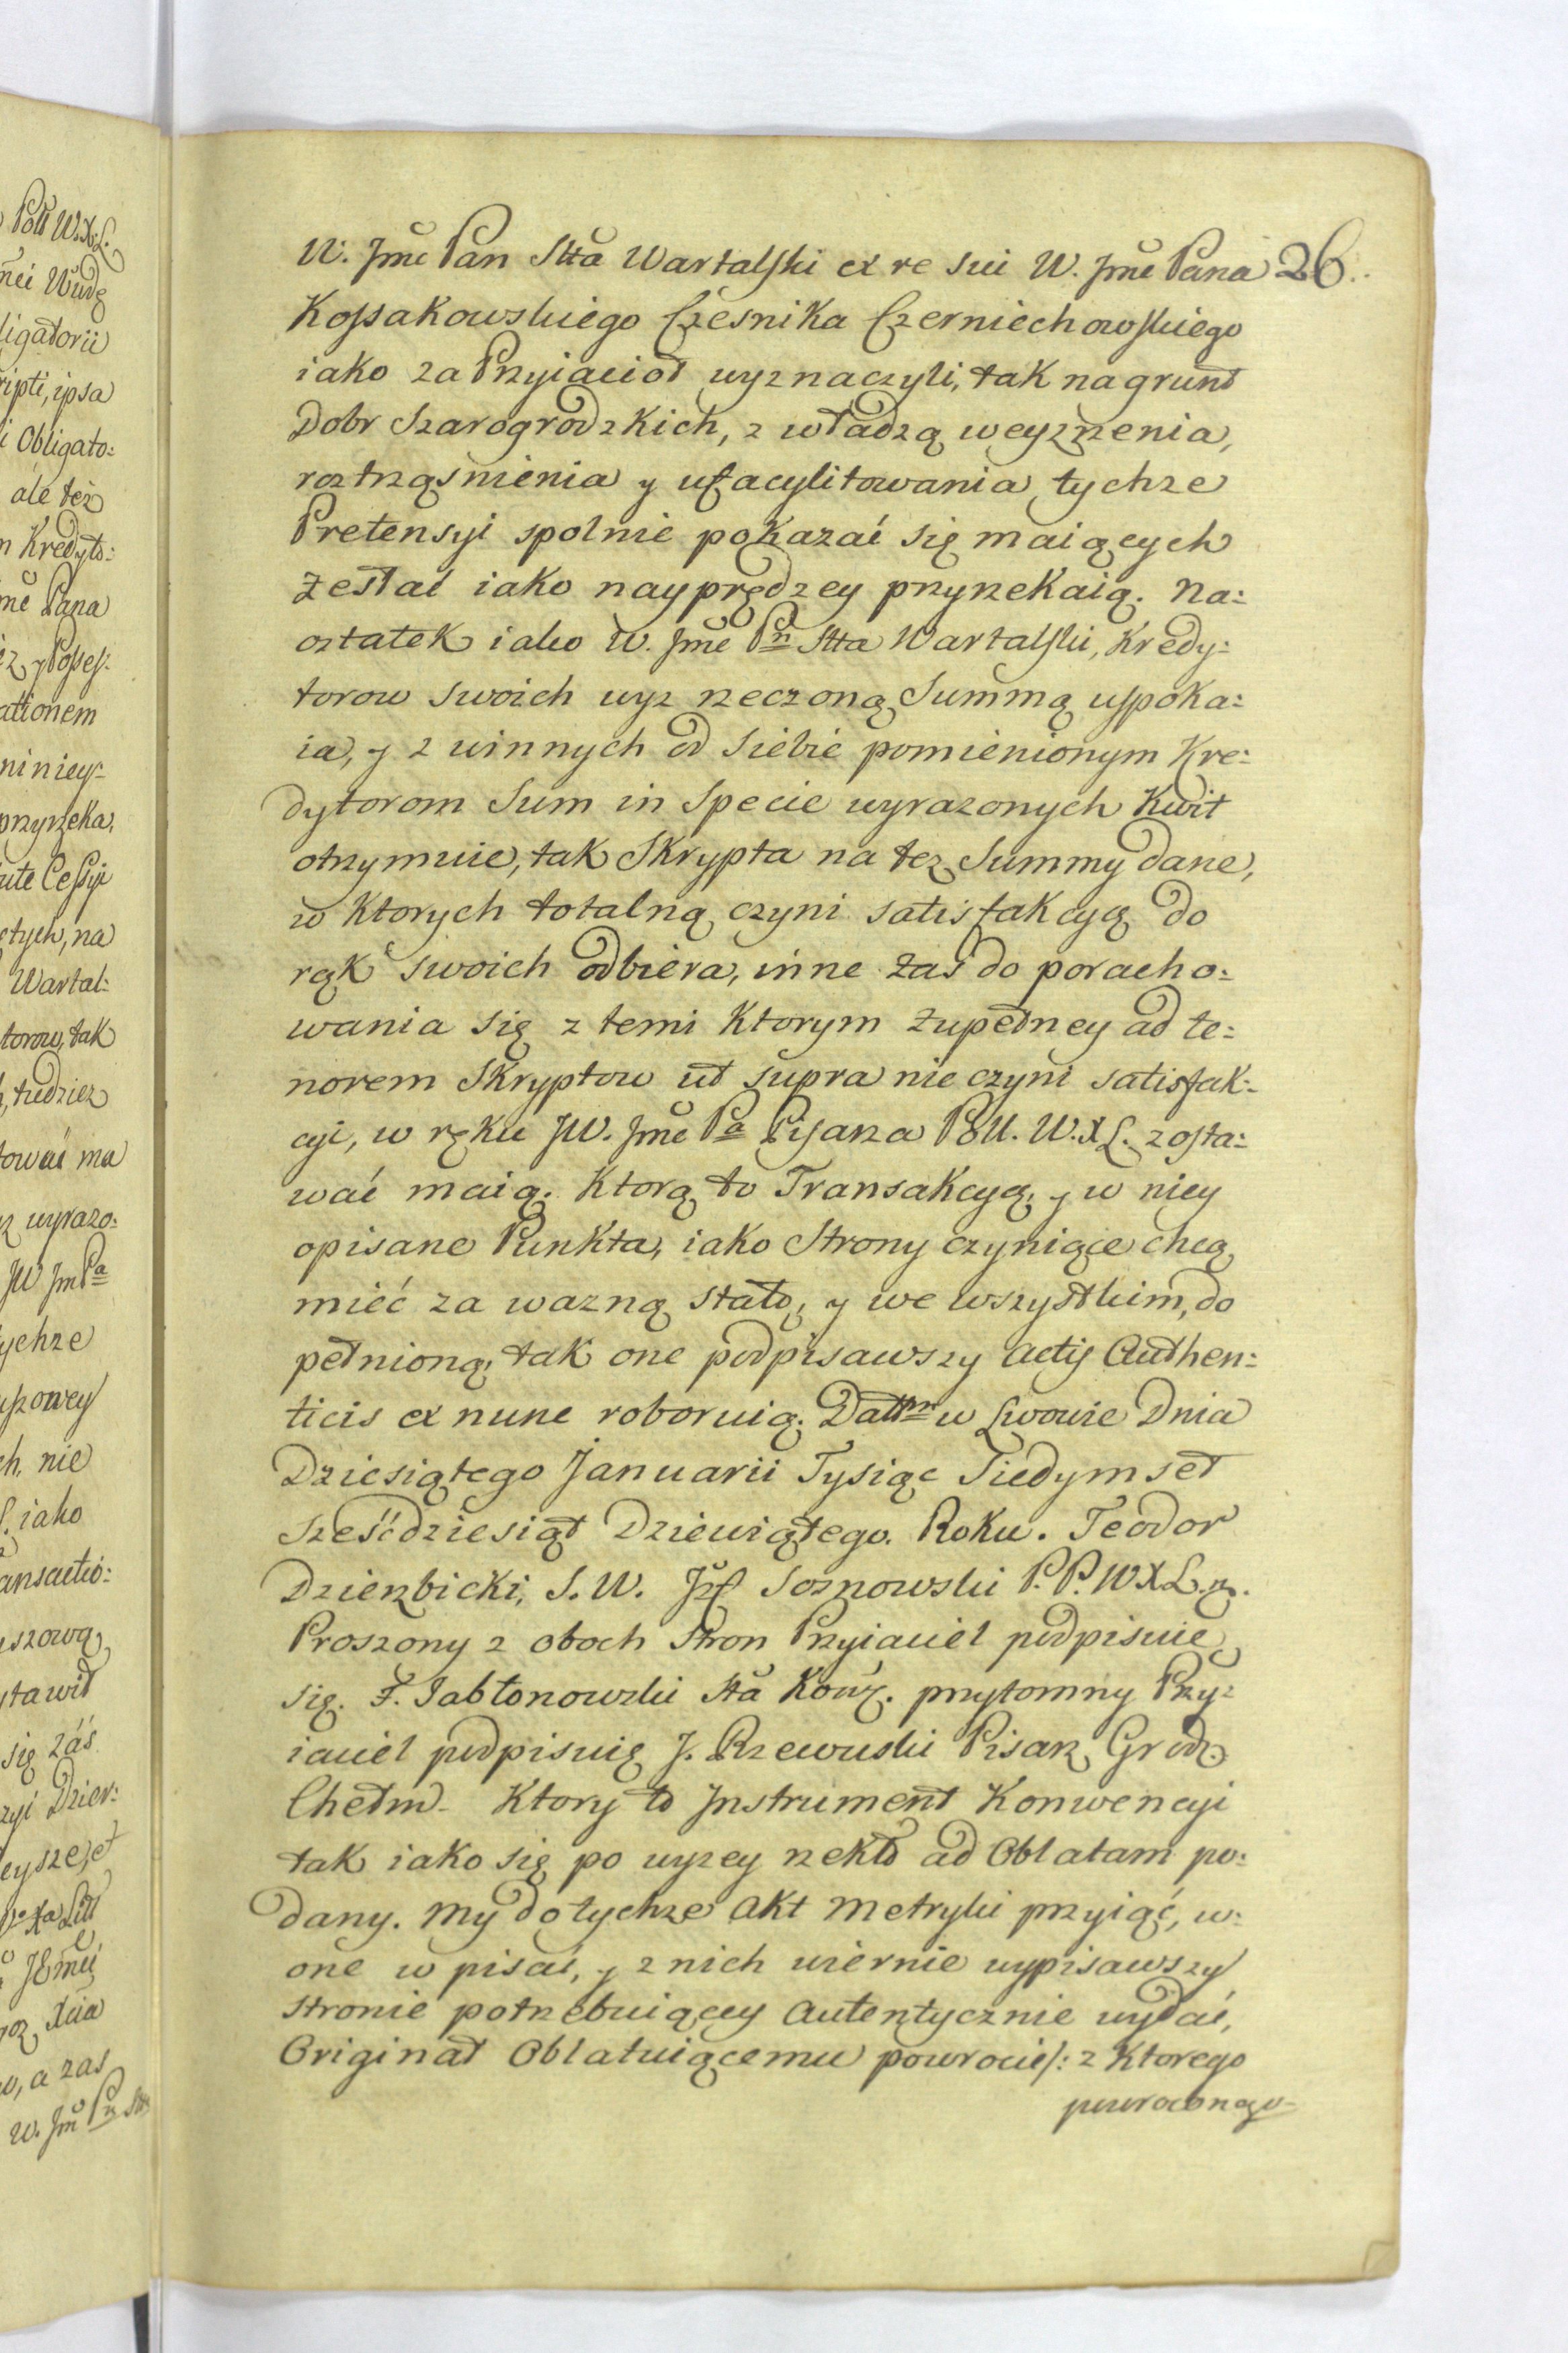 W. Jmć Pan Stta Wartalski ex re sui W. Jmć Pana 26.
Kossakowskiego Czesnika Czerniechowskiego
iako za Przyiacioł wyznaczyli, tak na grunt
Dobr Szarogrodzkich, z władzą weyzrzenia,
roztrząsnienia y ufacylitowania tychże
Pretensyi spolnie pokazać się maiących
Zesłać iako nayprędzey przyrzekaią. Na=
ostatek iako W. Jmć Pn Stta Wartalski, Kredy=
torow swoich wyz rzeczoną Summą uspoka=
ia, y z winnych od siebie pomienionym Kre=
dytorom Sum in Specie wyrazonych Kwit
otrzymuie, tak Skrypta na tez Summy dane,
w Ktorych totalną czyni satisfakcyą do
rąk swoich odbiera, inne zaś do poracho=
wania się z temi Ktorym zupełney ad te=
norem Skryptow ut supra nie czyni satisfak=
cyi, w ręku JW. Jmć Pa Pisarza Poll. W.X.L. zosta=
wać maią. Ktorą to Transakcyą, y w niey
opisane Punkta, iako Strony czyniące chcą
mieć za wazną stałą, y we wszystkim, do
pełnioną, tak one podpisawszy actis Authen=
ticis ex nunc roboruią. Dattm w Lwowie Dnia
Dziesiątego Januarii Tysiąc Siedymset
Sześćdziesiąt Dziewiątego. Roku. Teodor
Dzierzbicki, S. W. Jzf Sosnowski P. P. W X L.
Proszony z oboch Stron Przyiaciel podpisuie
się. F. Jabłonowski Sta Kow. przytomny Przy=
iaciel podpisuię J. Rzewuski Pisarz Grodz.
Chełm. Ktory to Jnstrument Konwencyi
tak iako się po wyzey rzekło ad Oblatam po=
dany. My do tychze Akt Metryki przyiąć, w=
one w pisać, y z nich wiernie wypisawszy
stronie potrzebuiącey Autentycznie wydać,
Originał Oblatuiącemu powrocić/: z Ktorego
powroconego
Poll W.X.L.
ligatorii
ripti, ipsa
i Obligato=
ale też
n Kredyto=
Jmć Pana
ationem
niniey=
przyrzeka,
ute Cessyi
tych, na
Wartal=
torow, tak
tudziesz
tować ma
wyrazo=
JW Jm Pa
tychze
nie
iako
ansactio=
szową
stawił
się zaś
zyi Dzier=
eysze, et
Xcia
a zas
W. Jmć Pn Stta